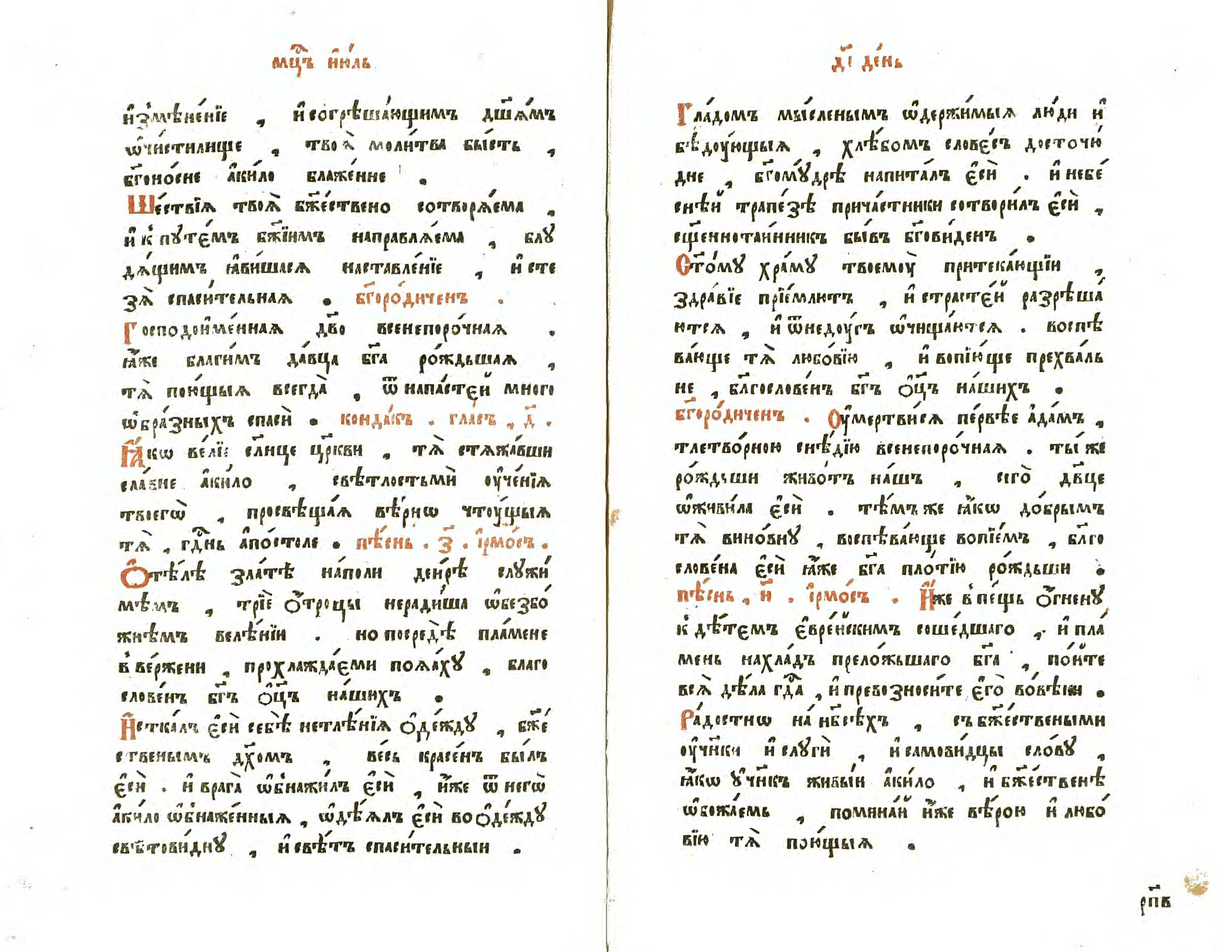 мц҃ъ і҆ю́ль
и҆змѣне́нїе , и҆согрѣша́ющимъ дш҃а́мъ
ѡ҆чисти́лище , твоѧ̀ моли́тва бы́сть ,
бг҃оно́сне а҆ки́ло блаже́нне .
Ше́ствїѧ твоѧ̀ бж҃е́ствено сотворѧ́ема ,
и҆ к̾ путе́мъ бж҃їимъ направлѧ́ема , блꙋ
дѧ́щимъ ꙗ҆ви́шасѧ наставле́нїе , и҆ сте
зѧ̀ спаси́тельнаѧ . бг҃оро́диченъ .
Господоиме́ннаѧ дв҃о всенепоро́чнаѧ .
ꙗ҆́же благи́мъ да́вца бг҃а ро́ждьшаѧ ,
тѧ̀ пою́щыѧ всегда̀ , ѿ напа́стей много
ѡ҆бра́зныхъ спасѝ . конда́къ . гла́съ , д҃ .
Ꙗ҆́кѡ ве́лїе сл҃нце цр҃кви , тѧ̀ стѧжа́вши
сла́вне а҆ки́ло , свѣтлостьмѝ ᲂу҆че́нїѧ
твоегѡ̀ , просвѣща́ѧ вѣ́рнѡ чтꙋ́щыѧ
тѧ̀ , гд҇нь а҆по́столе . пѣ́снь . з҃ . і҆рмо́съ .
Ѻ҆тѣ́лѣ зла́тѣ на́поли деи́рѣ слꙋжи́
мѣмъ , трїе ѻ҆́троцы неради́ша ѡ҆безбо́
жнѣмъ велѣ́нїи . но посредѣ̀ пла́мене
в̾ве́ржени , прохлажда́еми поѧ́хꙋ , благо
слове́нъ бг҃ъ ѻ҆ц҃ъ на́шихъ .
И҆стка́лъ є҆сѝ себѣ̀ нетлѣ́нїѧ ѻ҆де́ждꙋ , бж҃е́
ственымъ дх҃омъ , ве́сь красе́нъ бы́лъ
є҆сѝ . и҆ врага̀ ѡ҆бнажи́лъ є҆сѝ , и҆́же ѿ негѡ̀
а҆ки́ло ѡ҆бнаже́нныѧ , ѡ҆дѣ́ѧлъ є҆сѝ во ѻ҆де́ждꙋ
свѣтови́днꙋ , и҆ свѣ́тъ спаси́тельныи .
дı҃ де́нь
Гла́домъ мы́сленымъ ѡ҆держи́мыѧ лю́ди и҆
бѣ́дꙋющыѧ , хлѣ́бомъ слове́съ досточю́
дне , бг҃омꙋ́дрѣ напита́лъ є҆сѝ . и҆ небе́
снѣй трапе́зѣ прича́стники сотвори́лъ є҆сѝ ,
сщ҃еннотаи́нникъ бы́въ бг҃ови́денъ .
Ст҃о́мꙋ хра́мꙋ твоемꙋ̀ притека́ющїи ,
здра́вїе прїе́млитъ , и҆ страсте́й разрѣша́
ютсѧ , и҆ ѿнедꙋ́гъ ѡ҆чища́ютсѧ . воспѣ
ва́юще тѧ̀ любо́вїю , и҆ вопїю́ще прехва́ль
не , бл҃гослове́нъ бг҃ъ ѻ҆ц҃ъ на́шихъ .
бг҃оро́диченъ . Оу҆мертви́сѧ пе́рвѣе а҆да́мъ ,
тлетво́рною снѣ́дїю всенепоро́чнаѧ . ты́ же
ро́ждьши живо́тъ на́шъ , сего̀ дв҃це
ѡ҆живи́ла є҆сѝ . тѣ́мъ же ꙗ҆́кѡ до́брымъ
тѧ̀ вино́внꙋ , воспѣва́юще вопїе́мъ , бл҃го
слове́на є҆сѝ ꙗ҆́же бг҃а пло́тїю ро́ждьши .
пѣ́снь , и҃ . і҆рмо́съ . И҆́же в̾ пе́щь ѻ҆́гненꙋ
к̾ дѣ́темъ є҆вре́йскимъ соше́дшаго , и҆ пла́
мень нахла́дъ прело́жьшаго бг҃а , по́йте
всѧ̀ дѣла̀ гд҇а , и҆ превозноси́те є҆го̀ во́вѣки .
Ра́достнѡ на нб҃сѣ́хъ , съ бж҃е́ствеными
ᲂу҆ч҃нки и҆ слꙋгѝ , и҆ самови́дцы сло́вꙋ ,
ꙗ҆́кѡ ᲂу҆ч҃нкъ живы́и а҆ки́ло , и҆ бж҃е́ственѣ
ѡ҆божа́емь , помина́й и҆́же вѣ́рою и҆ любо́
вїю тѧ̀ пою́щыѧ .
рп҃в